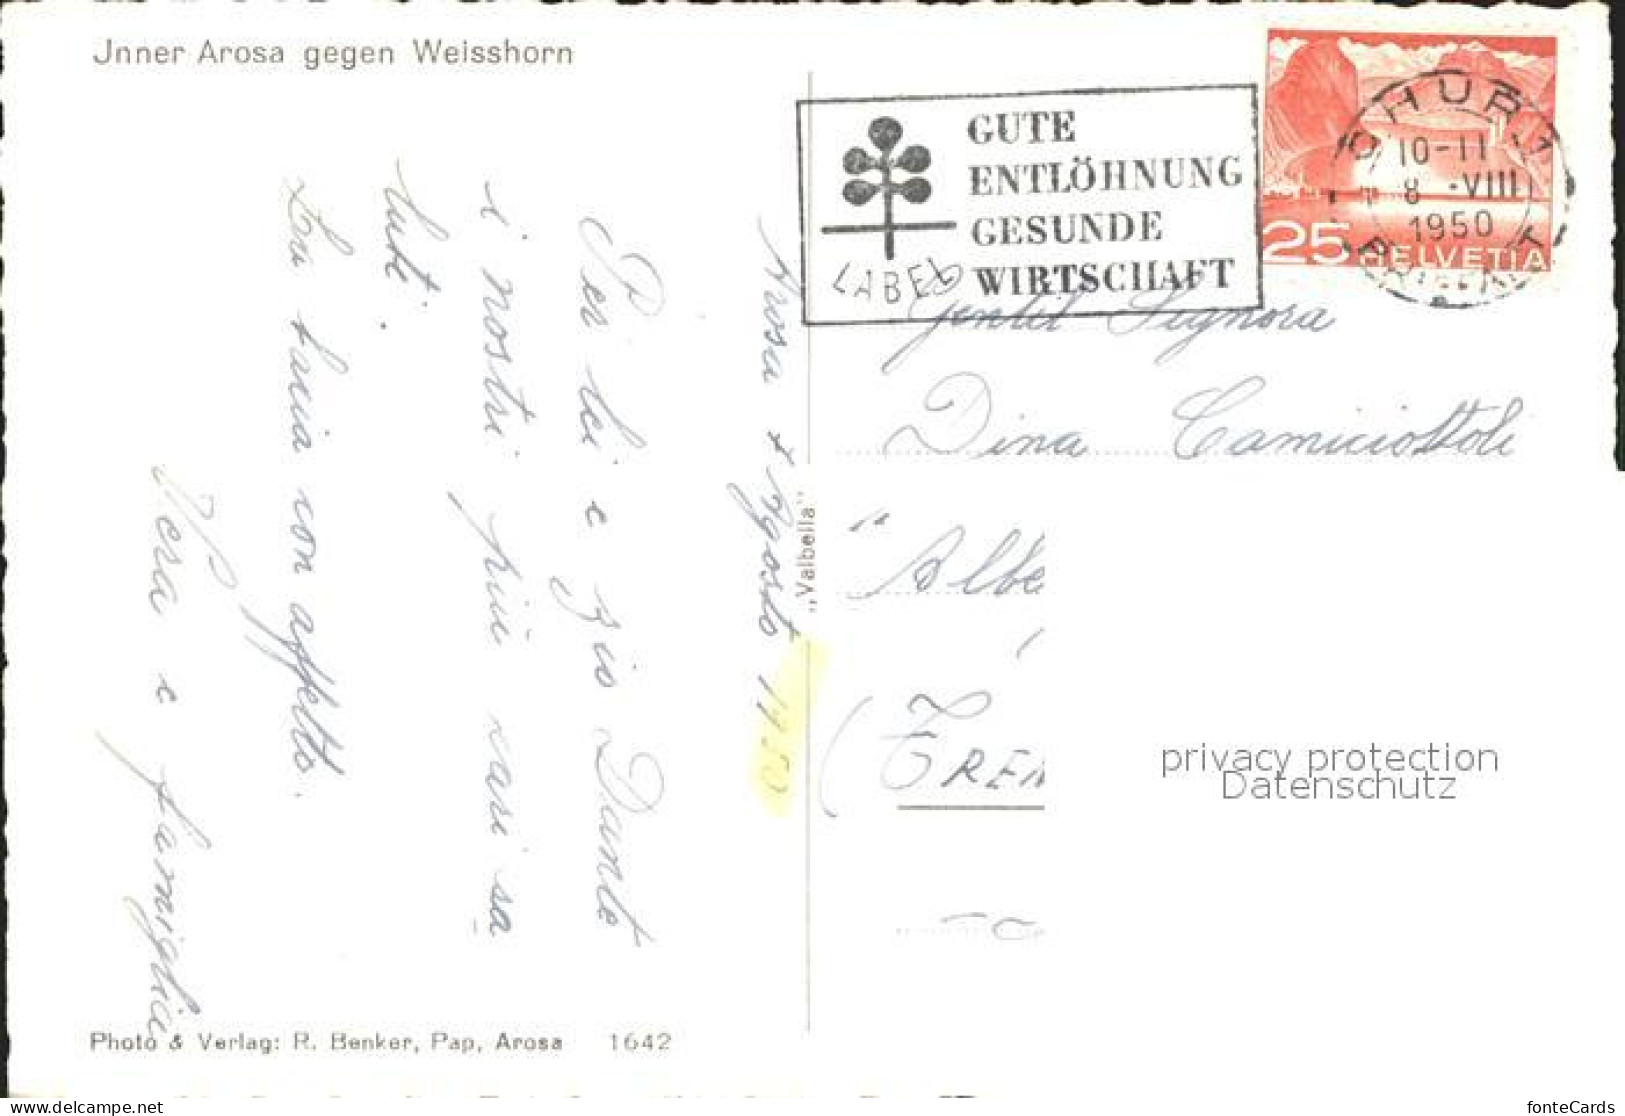 Jnner Arosa gegen Weisshorn
GUTE
ENTLÖHNUNG
GESUNDE
WIRTSCHAFT
LABEL
CHUR 1
10-11
8.-VIII
1950
25 HELVETIA
Arosa 7 Agosto 1950
Per lei e zio Dante
i nostri più cari sa
luti.
La bacia con affetto.
Vera e famiglia
Gentil Signora
Dina Camiciottoli
"Albe
(TREM
„Valbella"
privacy protection
Datenschutz
Photo & Verlag: R. Benker, Pap, Arosa 1642
www.delcampe.net
fonteCards